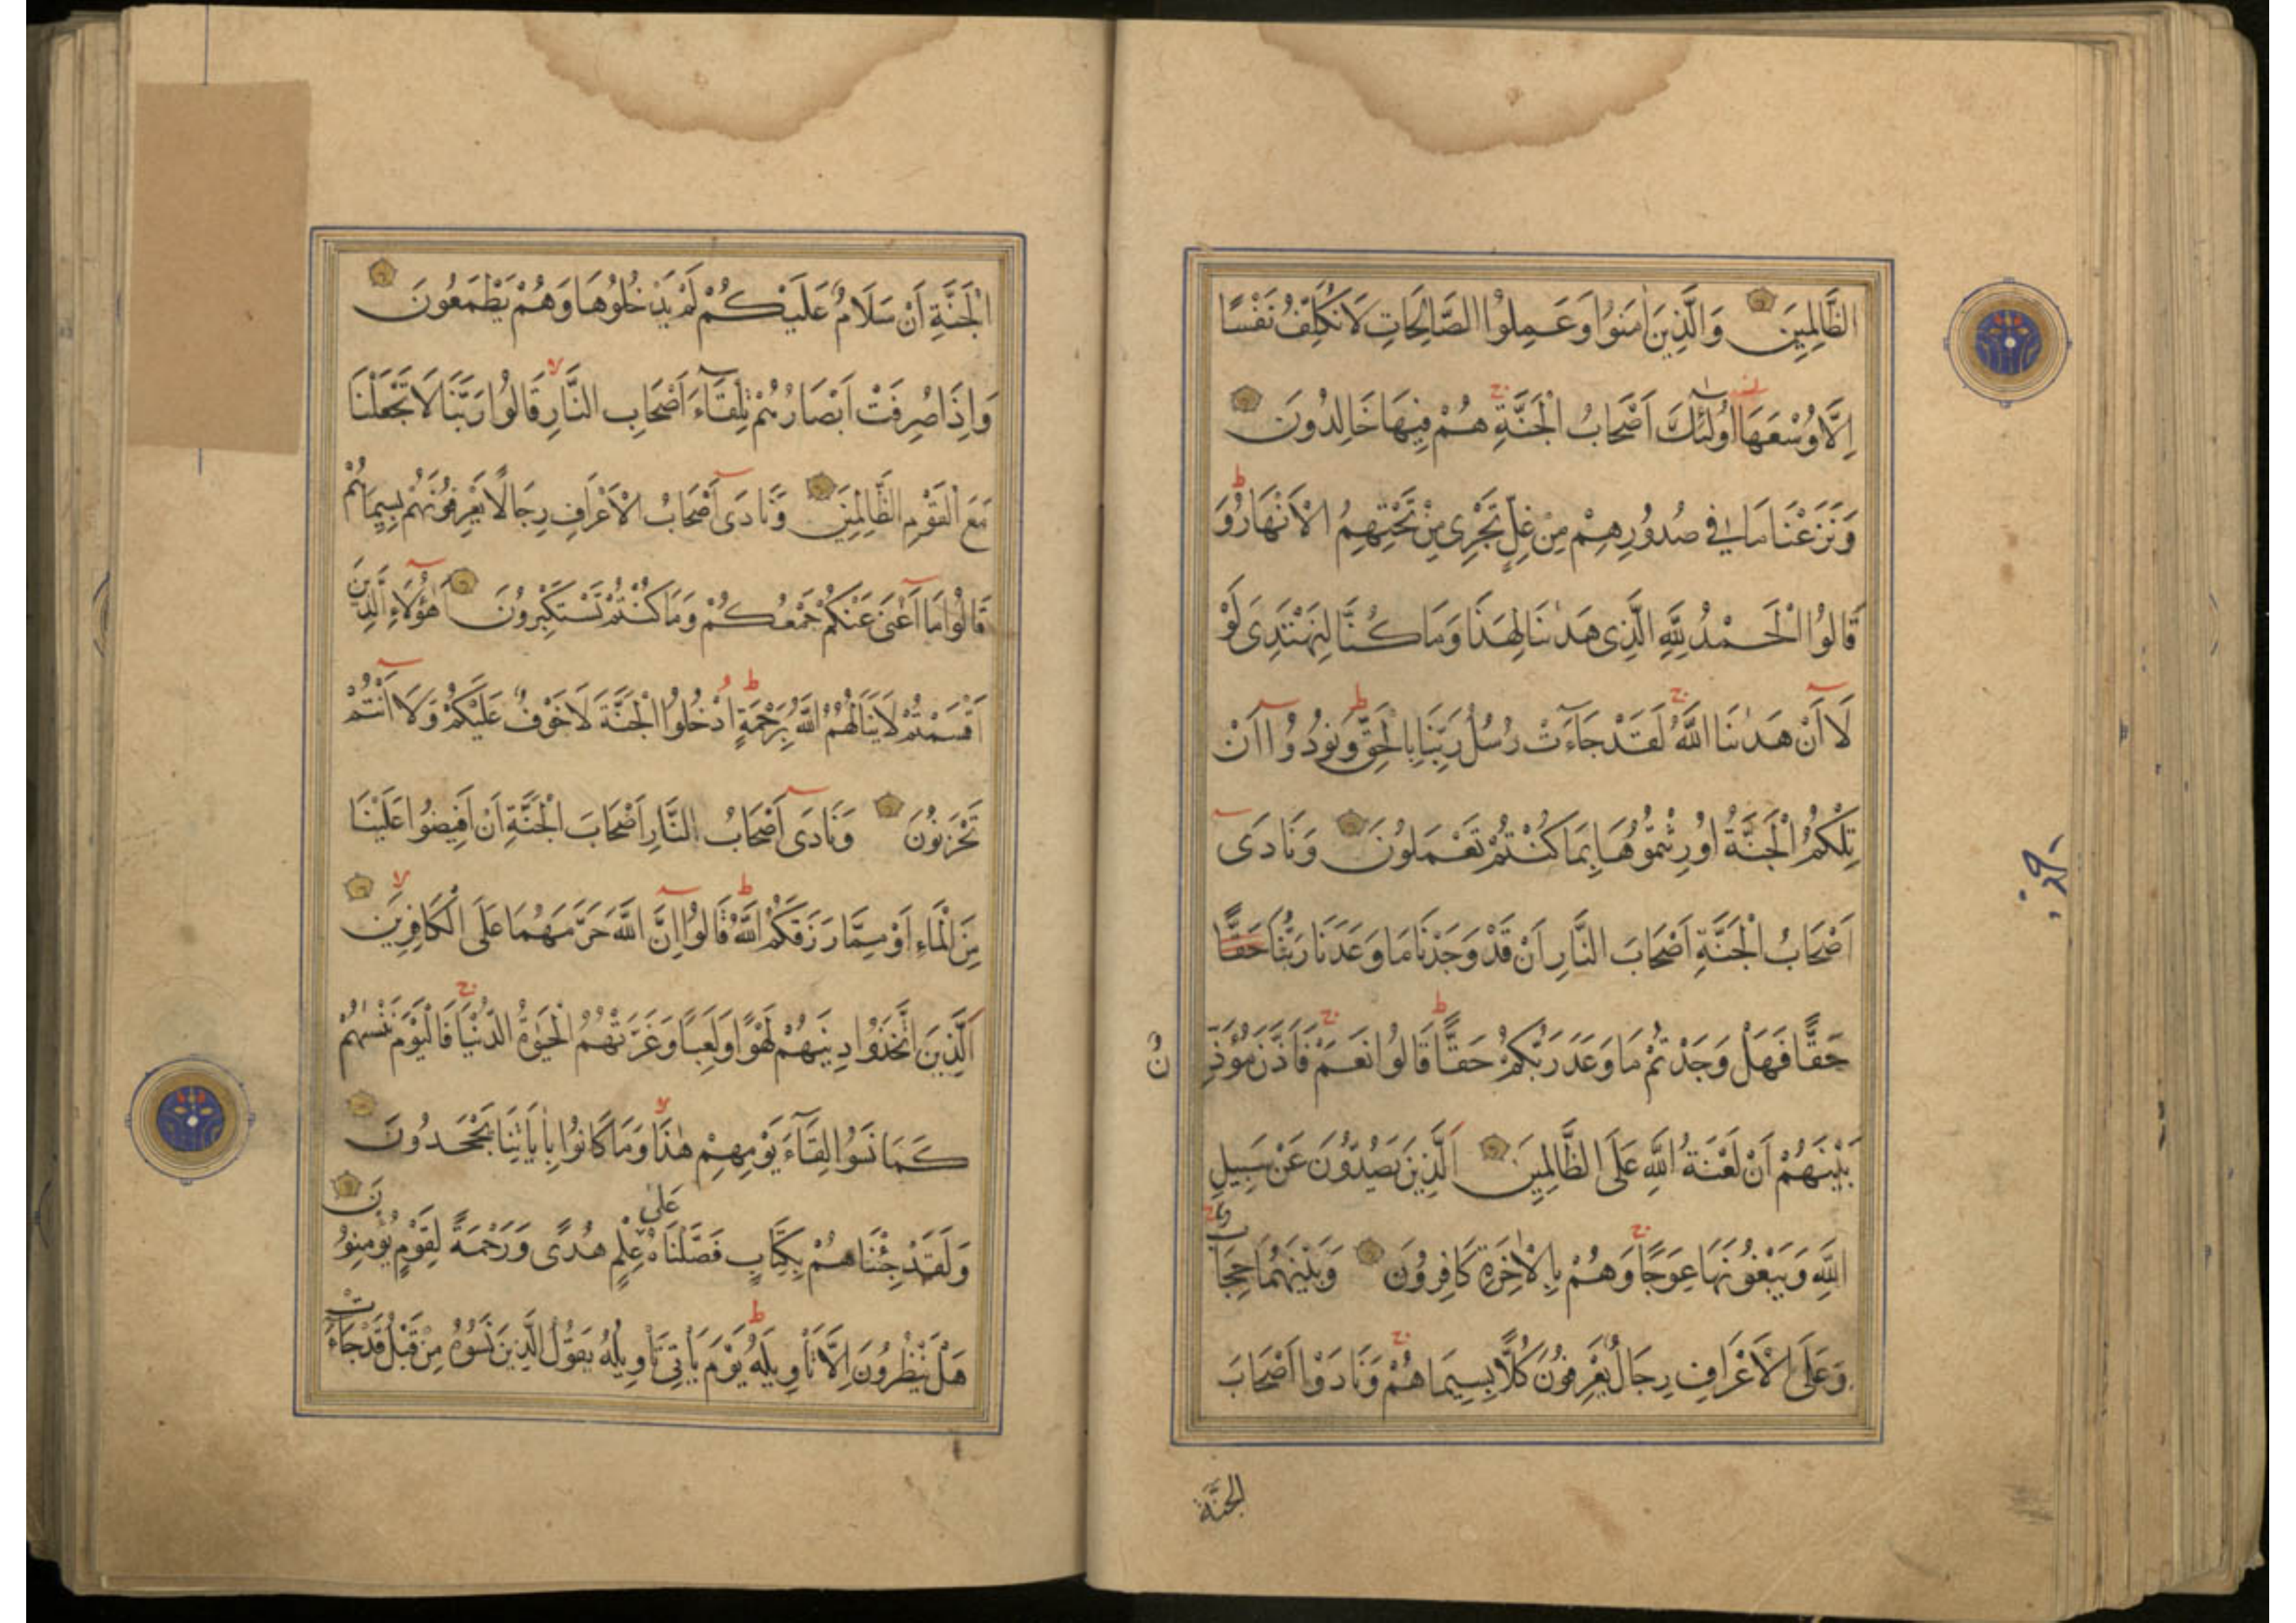 الظَّالِمِينَ وَالَّذِينَ اٰمَنُوا وَعَمِلُوا الصَّالِحَاتِ لَا نُكَلِّفُ نَفْسًا
اِلَّا وُسْعَهَا اُولٰٓئِكَ اَصْحَابُ الْجَنَّةِ هُمْ فِيهَا خَالِدُونَ
وَنَزَعْنَا مَا فِي صُدُورِهِمْ مِنْ غِلٍّ تَجْرِي مِنْ تَحْتِهِمُ الْاَنْهَارُ وَ
قَالُوا الْحَمْدُ لِلّٰهِ الَّذِي هَدٰينَا لِهٰذَا وَمَا كُنَّا لِنَهْتَدِيَ لَوْ
لَا اَنْ هَدٰينَا اللّٰهُ لَقَدْ جَاءَتْ رُسُلُ رَبِّنَا بِالْحَقِّ وَنُودُوا اَنْ
تِلْكُمُ الْجَنَّةُ اُورِثْتُمُوهَا بِمَا كُنْتُمْ تَعْمَلُونَ وَنَادَى
اَصْحَابُ الْجَنَّةِ اَصْحَابَ النَّارِ اَنْ قَدْ وَجَدْنَا مَا وَعَدَنَا رَبُّنَا حَقًّا
حَقًّا فَهَلْ وَجَدْتُمْ مَا وَعَدَ رَبُّكُمْ حَقًّا قَالُوا نَعَمْ فَاَذَّنَ مُؤَذِّنٌ
بَيْنَهُمْ اَنْ لَعْنَةُ اللّٰهِ عَلَى الظَّالِمِينَ اَلَّذِينَ يَصُدُّونَ عَنْ سَبِيلِ
اللّٰهِ وَيَبْغُونَهَا عِوَجًا وَهُمْ بِالْاٰخِرَةِ كَافِرُونَ وَبَيْنَهُمَا حِجَابٌ
وَعَلَى الْاَعْرَافِ رِجَالٌ يَعْرِفُونَ كُلًّا بِسِيمَاهُمْ وَنَادَوْا اَصْحَابَ
الجنَّة
الْجَنَّةِ اَنْ سَلَامٌ عَلَيْكُمْ لَمْ يَدْخُلُوهَا وَهُمْ يَطْمَعُونَ
وَاِذَا صُرِفَتْ اَبْصَارُهُمْ تِلْقَاءَ اَصْحَابِ النَّارِ قَالُوا رَبَّنَا لَا تَجْعَلْنَا
مَعَ الْقَوْمِ الظَّالِمِينَ وَنَادَى اَصْحَابُ الْاَعْرَافِ رِجَالًا يَعْرِفُونَهُمْ بِسِيمَاهُمْ
قَالُوا مَا اَغْنَى عَنْكُمْ جَمْعُكُمْ وَمَا كُنْتُمْ تَسْتَكْبِرُونَ اَهٰؤُلَاءِ الَّذِينَ
اَقْسَمْتُمْ لَا يَنَالُهُمُ اللّٰهُ بِرَحْمَةٍ اُدْخُلُوا الْجَنَّةَ لَا خَوْفٌ عَلَيْكُمْ وَلَا اَنْتُمْ
تَحْزَنُونَ وَنَادَى اَصْحَابُ النَّارِ اَصْحَابَ الْجَنَّةِ اَنْ اَفِيضُوا عَلَيْنَا
مِنَ الْمَاءِ اَوْ مِمَّا رَزَقَكُمُ اللّٰهُ قَالُوا اِنَّ اللّٰهَ حَرَّمَهُمَا عَلَى الْكَافِرِينَ
اَلَّذِينَ اتَّخَذُوا دِينَهُمْ لَهْوًا وَلَعِبًا وَغَرَّتْهُمُ الْحَيٰوةُ الدُّنْيَا فَالْيَوْمَ نَنْسٰيهُمْ
كَمَا نَسُوا لِقَاءَ يَوْمِهِمْ هٰذَا وَمَا كَانُوا بِاٰيَاتِنَا يَجْحَدُونَ
وَلَقَدْ جِئْنَاهُمْ بِكِتَابٍ فَصَّلْنَاهُ عَلَى عِلْمٍ هُدًى وَرَحْمَةً لِقَوْمٍ يُؤْمِنُونَ
هَلْ يَنْظُرُونَ اِلَّا تَأْوِيلَهُ يَوْمَ يَأْتِي تَأْوِيلُهُ يَقُولُ الَّذِينَ نَسُوهُ مِنْ قَبْلُ قَدْ جَاءَتْ